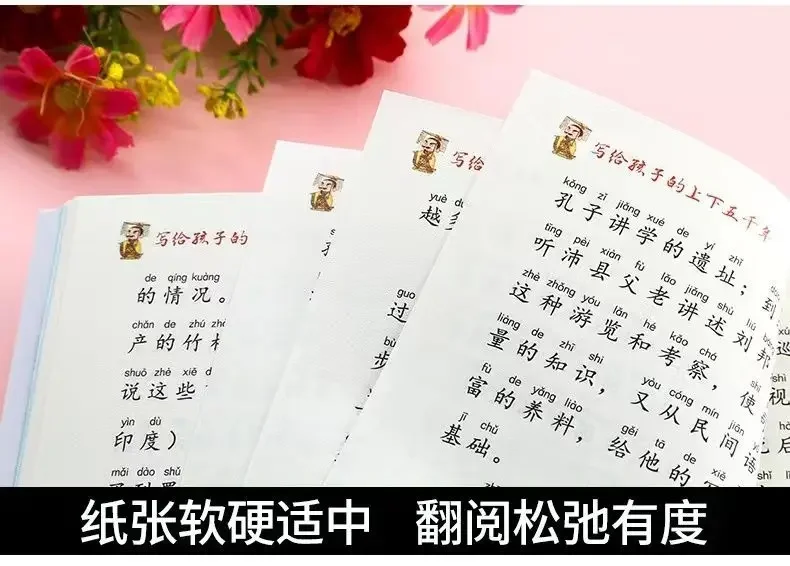 写给孩子的
de qíng kuàng
的情况。
chǎn de zhú
产的竹
shuō zhè xiē
说这些
yìn dù
印度）
mǎi dào shǔ
写给
yuè
越
guo
过
bù
步
写给孩子的上下五千年
kǒng zǐ jiǎng xué de yí zhǐ
孔子讲学的遗址；到
tīng pèi xiàn fù lǎo jiǎng shù liú bāng
听沛县父老讲述刘邦
zhè zhǒng yóu lǎn hé kǎo chá
这种游览和考察，使
liàng de zhī shi yòu cóng mín jiān yǔ
量的知识，又从民间语
fù de yǎng liào gěi tā de xiě
富的养料，给他的写
jī chǔ
基础。
纸张软硬适中 翻阅松弛有度